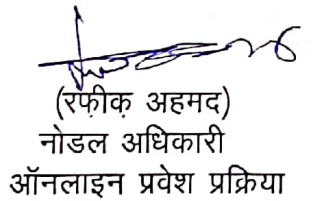 (रफ़ीक़ अहमद)
नोडल अधिकारी
ऑनलाइन प्रवेश प्रक्रिया